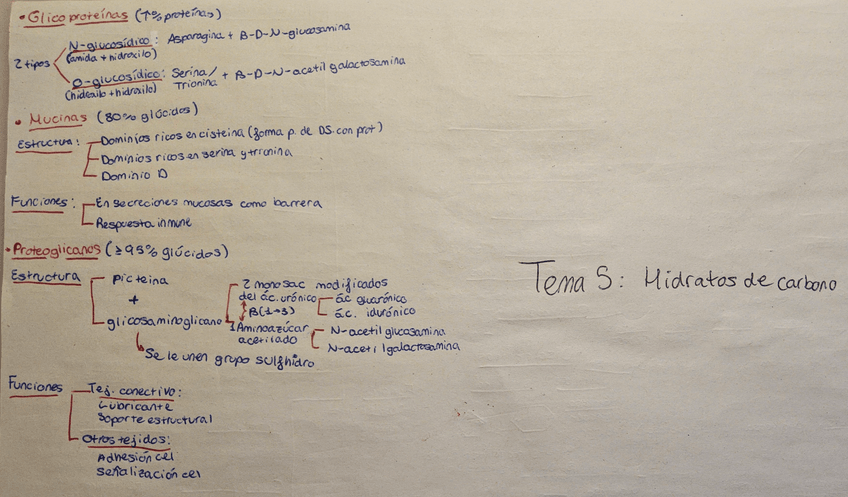 • Glicoproteínas (↑% proteínas)
2 tipos
N-glucosídico: Asparagina + B-D-N-glucosamina
(amida + hidroxilo)
O-glucosídico: Serina/Trionina + B-D-N-acetil galactosamina
(hidroxilo + hidroxilo)
• Mucinas (80% glúcidos)
Estructura: Dominios ricos en cisteina (forma p. de DS. con prot)
Dominios ricos en serina y trionina
Dominio D
Funciones: En secreciones mucosas como barrera
Respuesta inmune
• Proteoglicanos (≥95% glúcidos)
Estructura
Picteina
+
glicosaminoglicano
2 monosac modificados
del ác. urónico
ác guarónico
ác. idurónico
B(1→3)
1 Aminoazúcar
acetilado
N-acetil glucosamina
N-acetil galactosamina
Se le unen grupo sulfhidro
Funciones
Tej. conectivo:
Lubricante
Soporte estructural
Otros tejidos:
Adhesión cel
Señalización cel
Tema 5: Hidratos de carbono